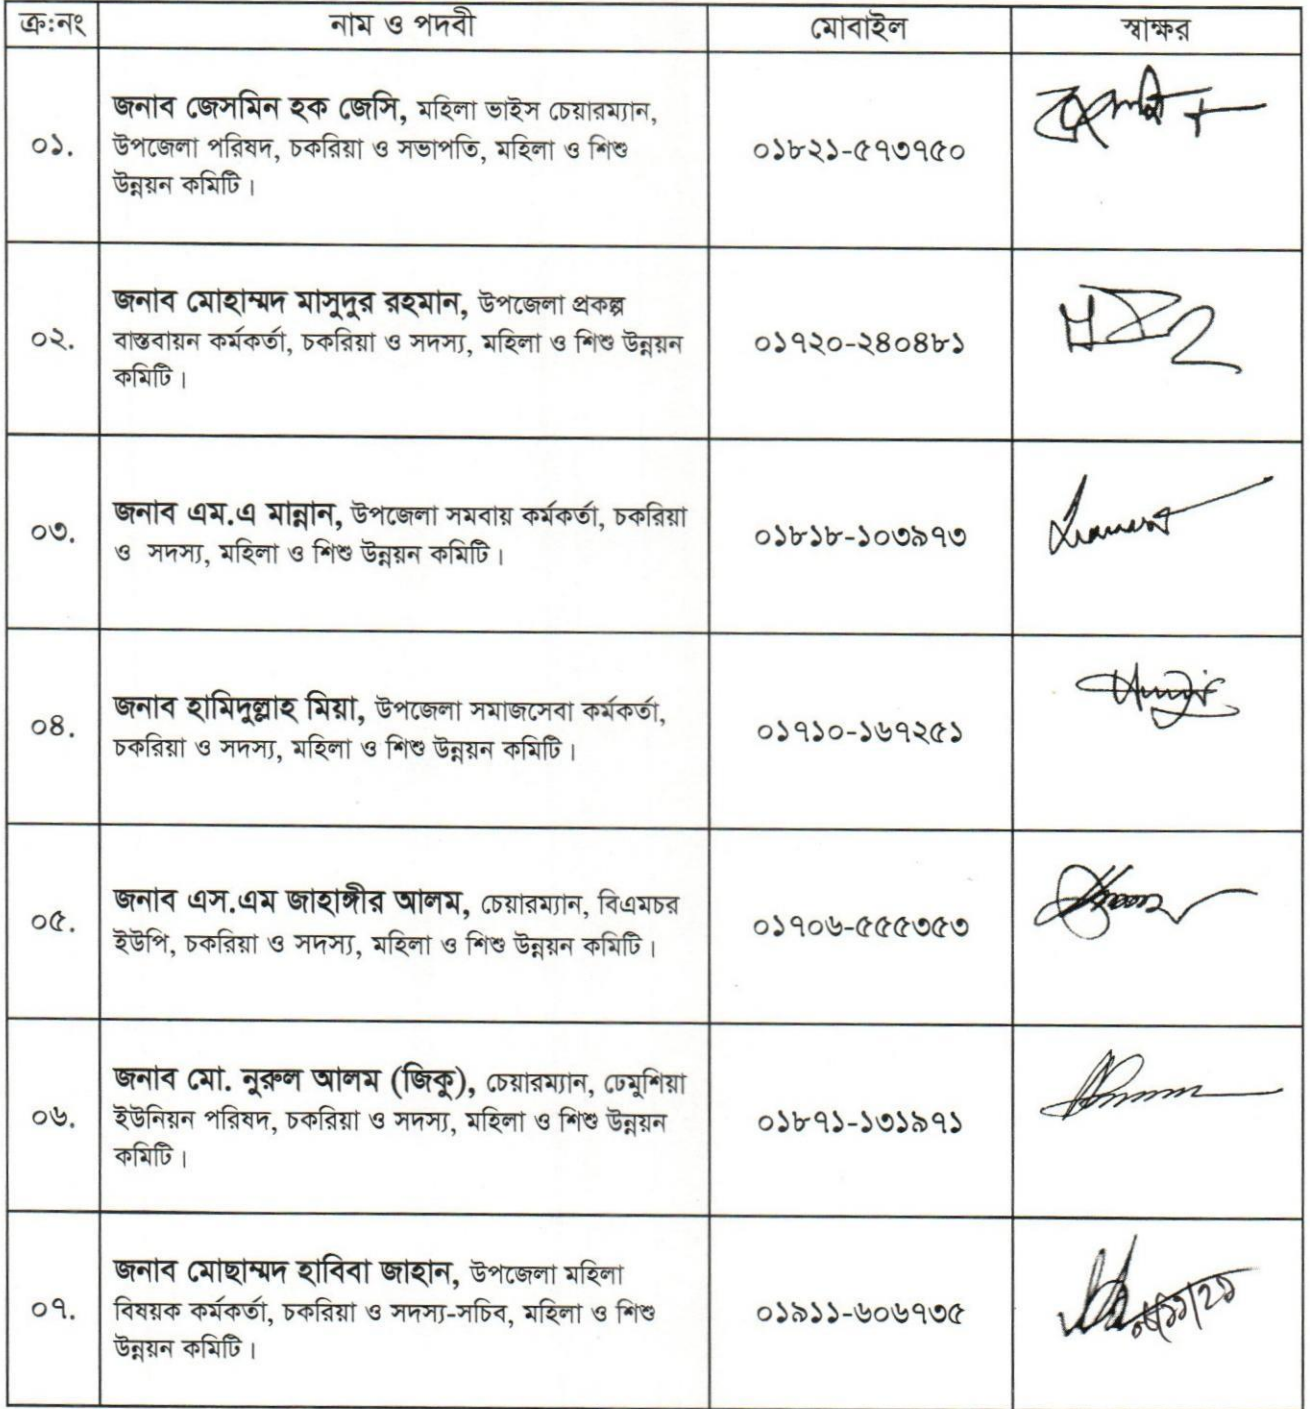 ক্র:নং নাম ও পদবী মোবাইল স্বাক্ষর
জনাব জেসমিন হক জেসি, মহিলা ভাইস চেয়ারম্যান,
০১. উপজেলা পরিষদ, চকরিয়া ও সভাপতি, মহিলা ও শিশু ০১৮২১-৫৭৩৭৫০
উন্নয়ন কমিটি।
জনাব মোহাম্মদ মাসুদুর রহমান, উপজেলা প্রকল্প
০২. বাস্তবায়ন কর্মকর্তা, চকরিয়া ও সদস্য, মহিলা ও শিশু উন্নয়ন ০১৭২০-২৪০৪৮১
কমিটি।
জনাব এম.এ মান্নান, উপজেলা সমবায় কর্মকর্তা, চকরিয়া
০৩. ও সদস্য, মহিলা ও শিশু উন্নয়ন কমিটি। ০১৮১৮-১০৩৯৭৩
জনাব হামিদুল্লাহ মিয়া, উপজেলা সমাজসেবা কর্মকর্তা,
০৪. চকরিয়া ও সদস্য, মহিলা ও শিশু উন্নয়ন কমিটি। ০১৭১০-১৬৭২৫১
জনাব এস.এম জাহাঙ্গীর আলম, চেয়ারম্যান, বিএমচর
০৫. ইউপি, চকরিয়া ও সদস্য, মহিলা ও শিশু উন্নয়ন কমিটি। ০১৭০৬-৫৫৫৩৫৩
জনাব মো. নুরুল আলম (জিকু), চেয়ারম্যান, ঢেমুশিয়া
০৬. ইউনিয়ন পরিষদ, চকরিয়া ও সদস্য, মহিলা ও শিশু উন্নয়ন ০১৮৭১-১৩১৯৭১
কমিটি।
জনাব মোছাম্মদ হাবিবা জাহান, উপজেলা মহিলা
০৭. বিষয়ক কর্মকর্তা, চকরিয়া ও সদস্য-সচিব, মহিলা ও শিশু ০১৯১১-৬০৬৭৩৫
উন্নয়ন কমিটি।